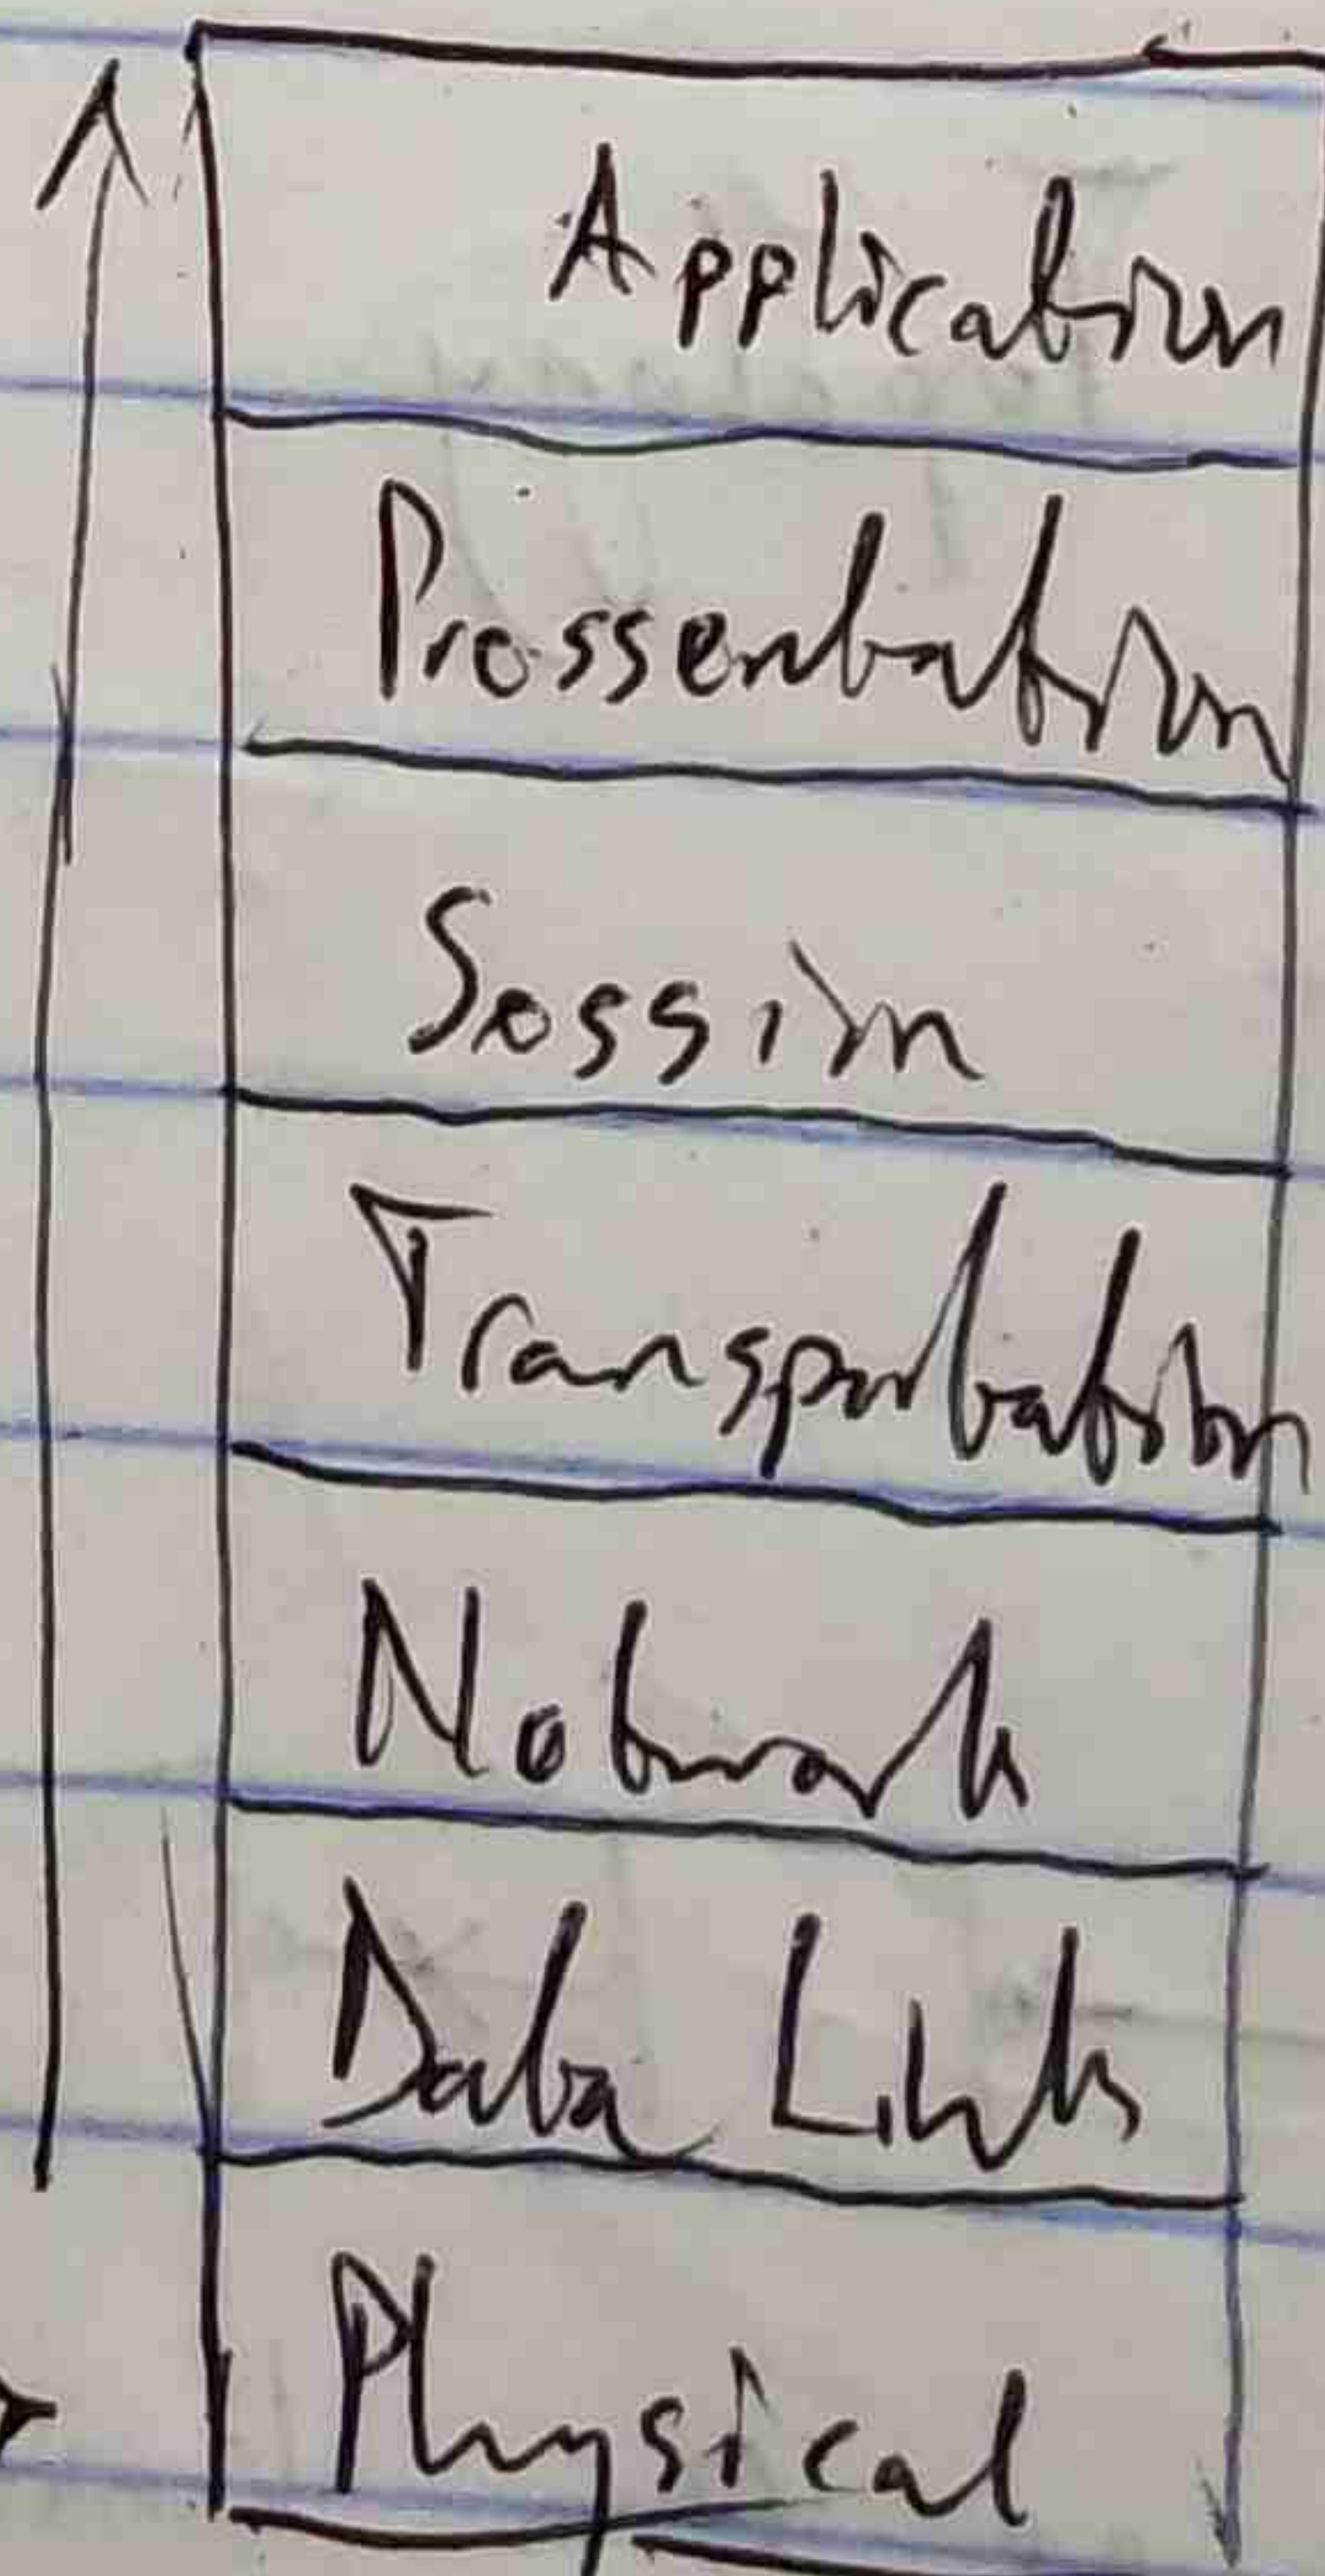 Application
Pressentation
Session
Transportation
Network
Data Link
Physical